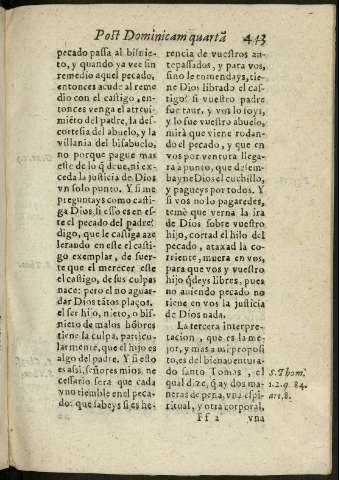 Post Dominicam quartã 443
pecado passa al bisnie-
to, y quando ya vee sin
remedio aquel pecado,
entonces acude al reme
dio con el castigo, en-
tonces venga el atreui-
miẽto del padre, la des-
cortesia del abuelo, y la
villania del bisabuelo,
no porque pague mas
este de lo q̃ deue, ni ex-
ceda la justicia de Dios
vn solo punto. Y si me
preguntays como casti-
ga Dios, si esso es en es-
te el pecado del padre?
digo, que le castiga aze
lerando en este el casti-
go exemplar, de suer-
te que el merecer este
el castigo, de sus culpas
nace: pero el no aguar-
dar Dios tãtos plaços,
el ser hijo, nieto, o bis-
nieto de malos hõbres
tiene la culpa, particu-
larmente, que el hijo es
algo del padre. Y si esto
es assi, señores mios, ne
cessario sera que cada
vno tiemble en el peca-
do: que sabeys si es he-
rencia de vuestros an-
tepassados, y para vos,
sino le enmendays, tie-
ne Dios librado el cas-
tigo? si vuestro padre
fue taur, y vos lo soys,
y lo fue vuestro abuelo,
mirà que viene rodan-
do el pecado, y que en
vos por ventura llega-
ra a punto, que dasem-
bayne Dios el cuchillo,
y pagueys por todos. Y
si vos no lo pagaredes,
temè que verna la ira
de Dios sobre vuestro
hijo, cortad el hilo del
pecado, ataxad la co-
rriente, muera en vos,
para que vos y vuestro
hijo q̃deys libres, pues
no auiendo pecado no
tiene en vos la justicia
de Dios nada.
La tercera interpre-
tacion, que es la me-
jor, y mas a mi proposi
to, es del bienauentura-
do santo Tomas, el
qual dize, q̃ ay dos ma-
neras de pena, vna espi-
ritual, y otra corporal,
S. Thom.
1.2.q. 84.
art. 8.
Ff 2 vna